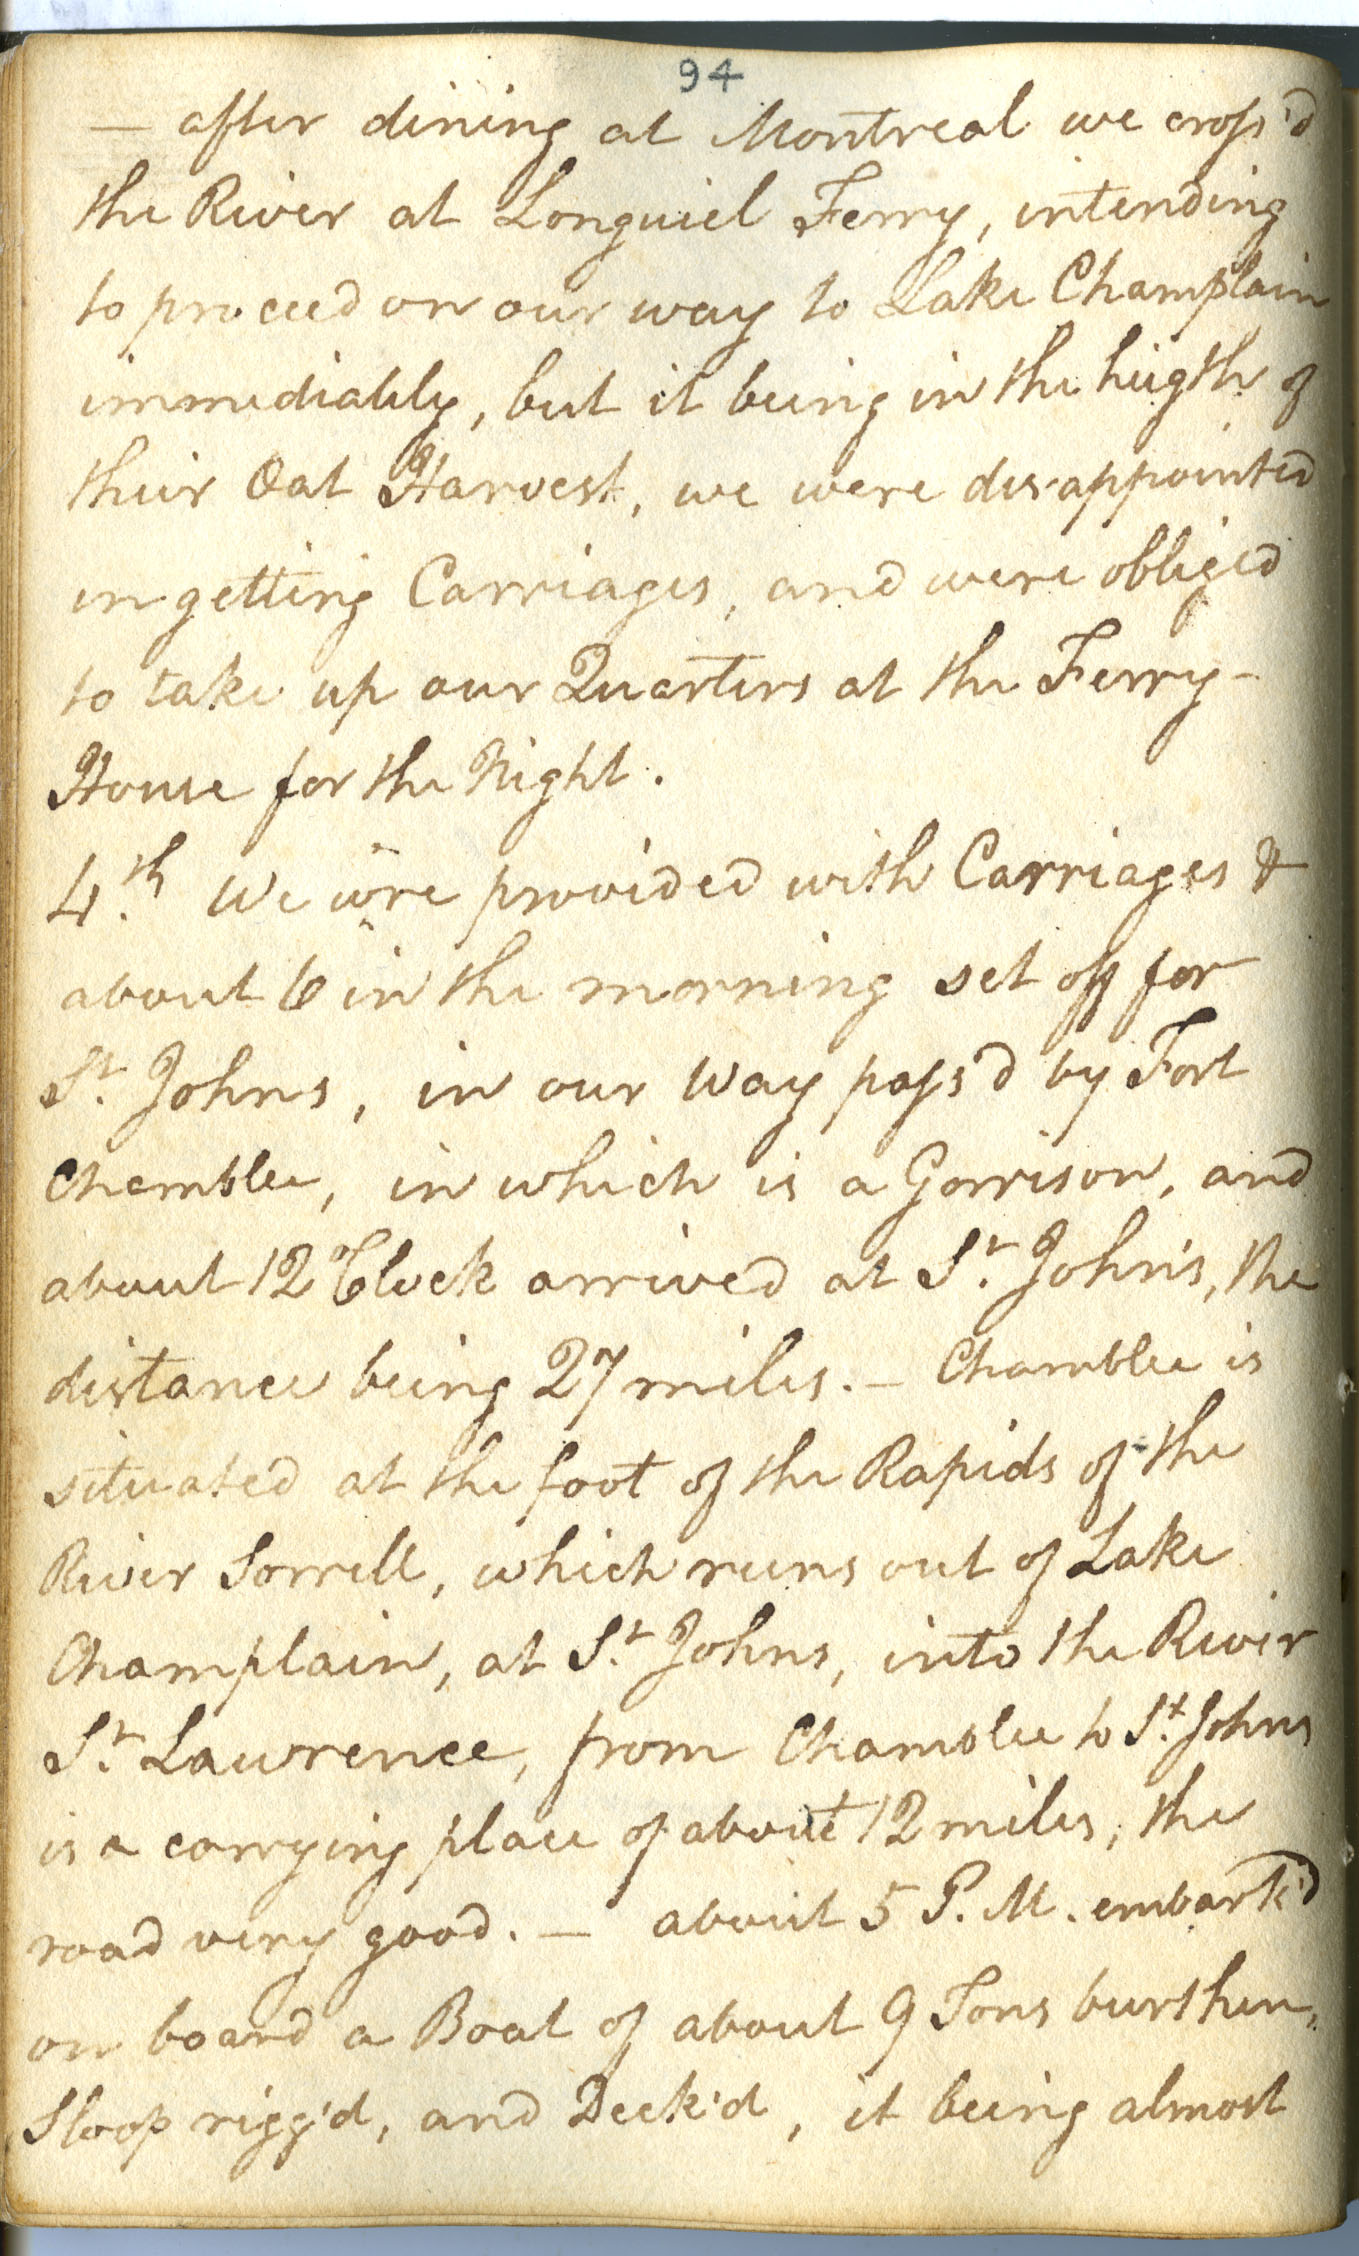 94
— after dining at Montreal we cross'd
the River at Longuiel Ferry, intending
to proceed on our way to Lake Champlain
immediately, but it being in the heigth of
their Oat Harvest, we were disappointed
in getting Carriages, and were obliged
to take up our Quarters at the Ferry-
House for the Night.
4.th We were provided with Carriages &
about 6 in the morning set off for
St. Johns, in our Way pass'd by Fort
Chamblee, in which is a Garrison, and
about 12 oClock arrived at St. John's, the
distance being 27 miles. — Chamblee is
situated at the foot of the Rapids of the
River Sorrell, which runs out of Lake
Champlain, at St. Johns, into the River
St. Lawrence, from Chamblee to St. Johns
is a carrying place of about 12 miles, the
road very good. — about 5 P.M. embark'd
on board a Boat of about 9 Tons burthen,
Sloop rigg'd, and Deck'd, it being almost